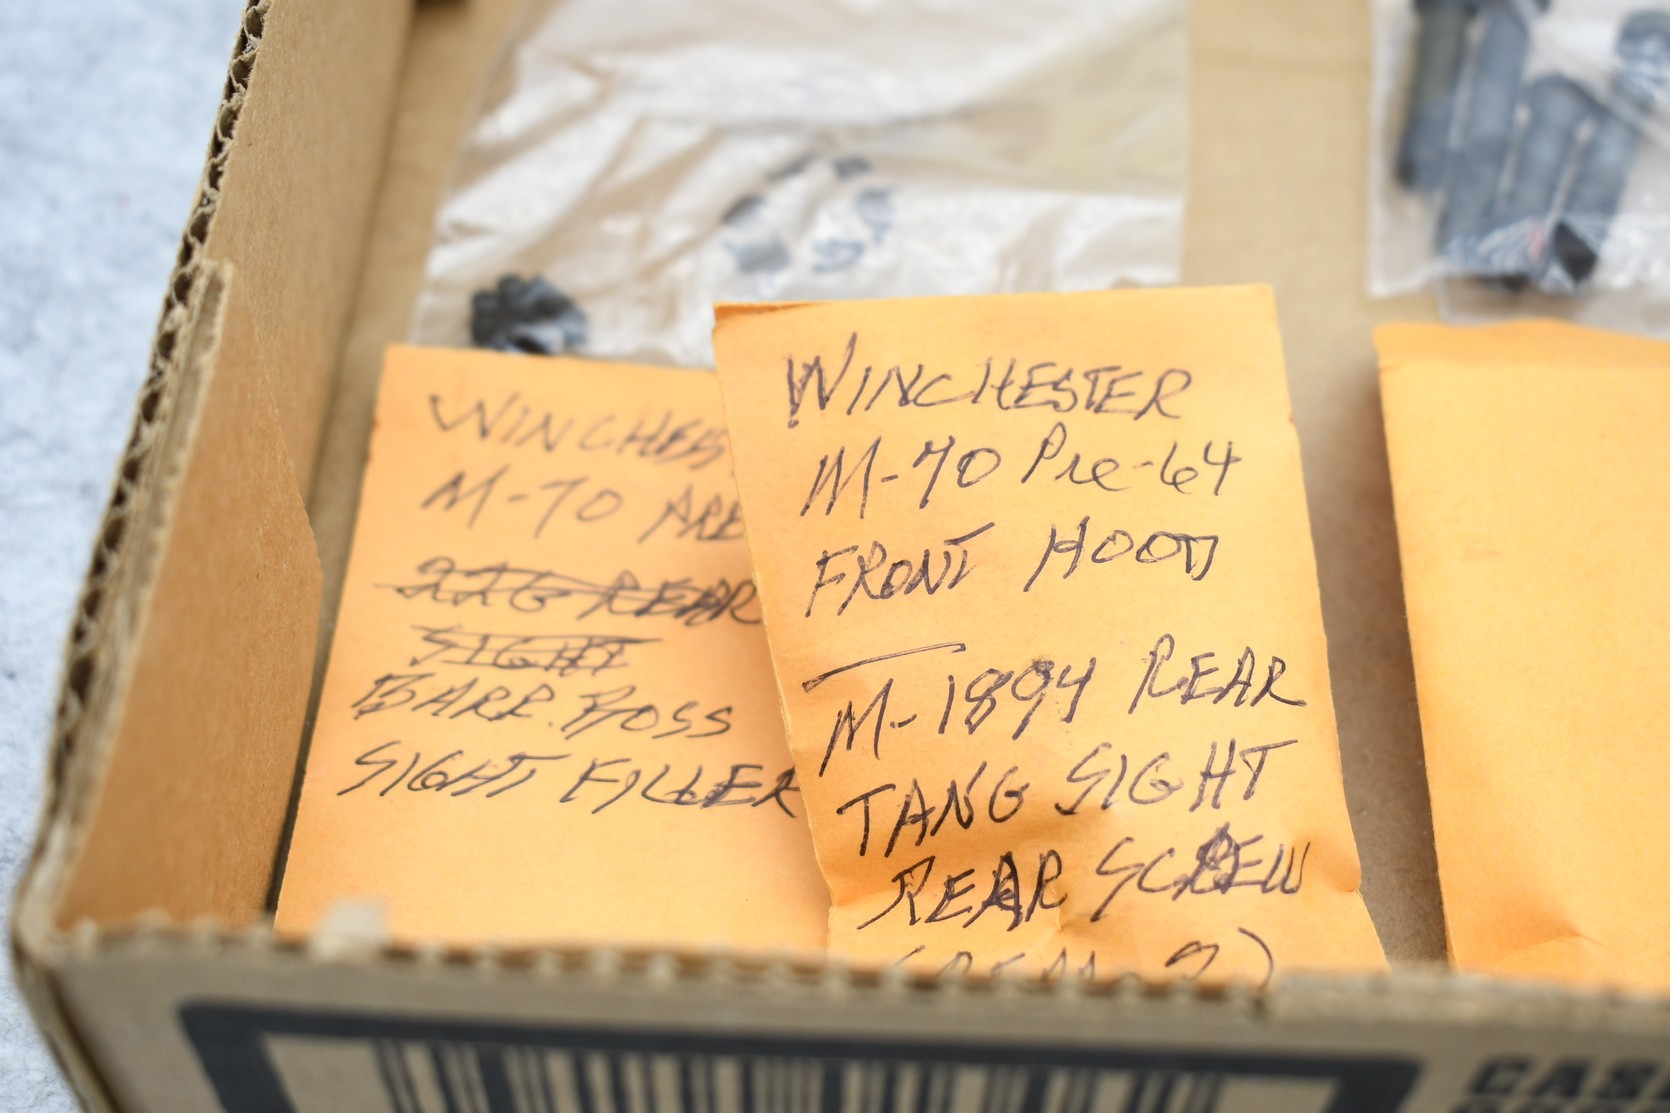 WINCHES
M-70 PRE
22G REAR
SIGHT
BARR. BOSS
SIGHT FILLER
WINCHESTER
M-70 Pre-64
FRONT HOOD
M-1894 REAR
TANG SIGHT
REAR SCREW
CAS